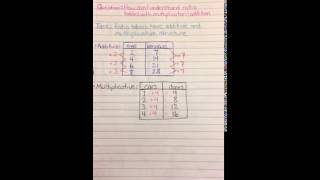 Question: How can I understand ratio
tables with multiplication/addition
Ratio tables have additive and
multiplicative structure
Additive:
+2 2 7 +7
+2 4 14 +7
+2 6 21 +7
8 28
Multiplicative:
cars doors
1 ×4 4
2 ×4 8
3 ×4 12
4 ×4 16